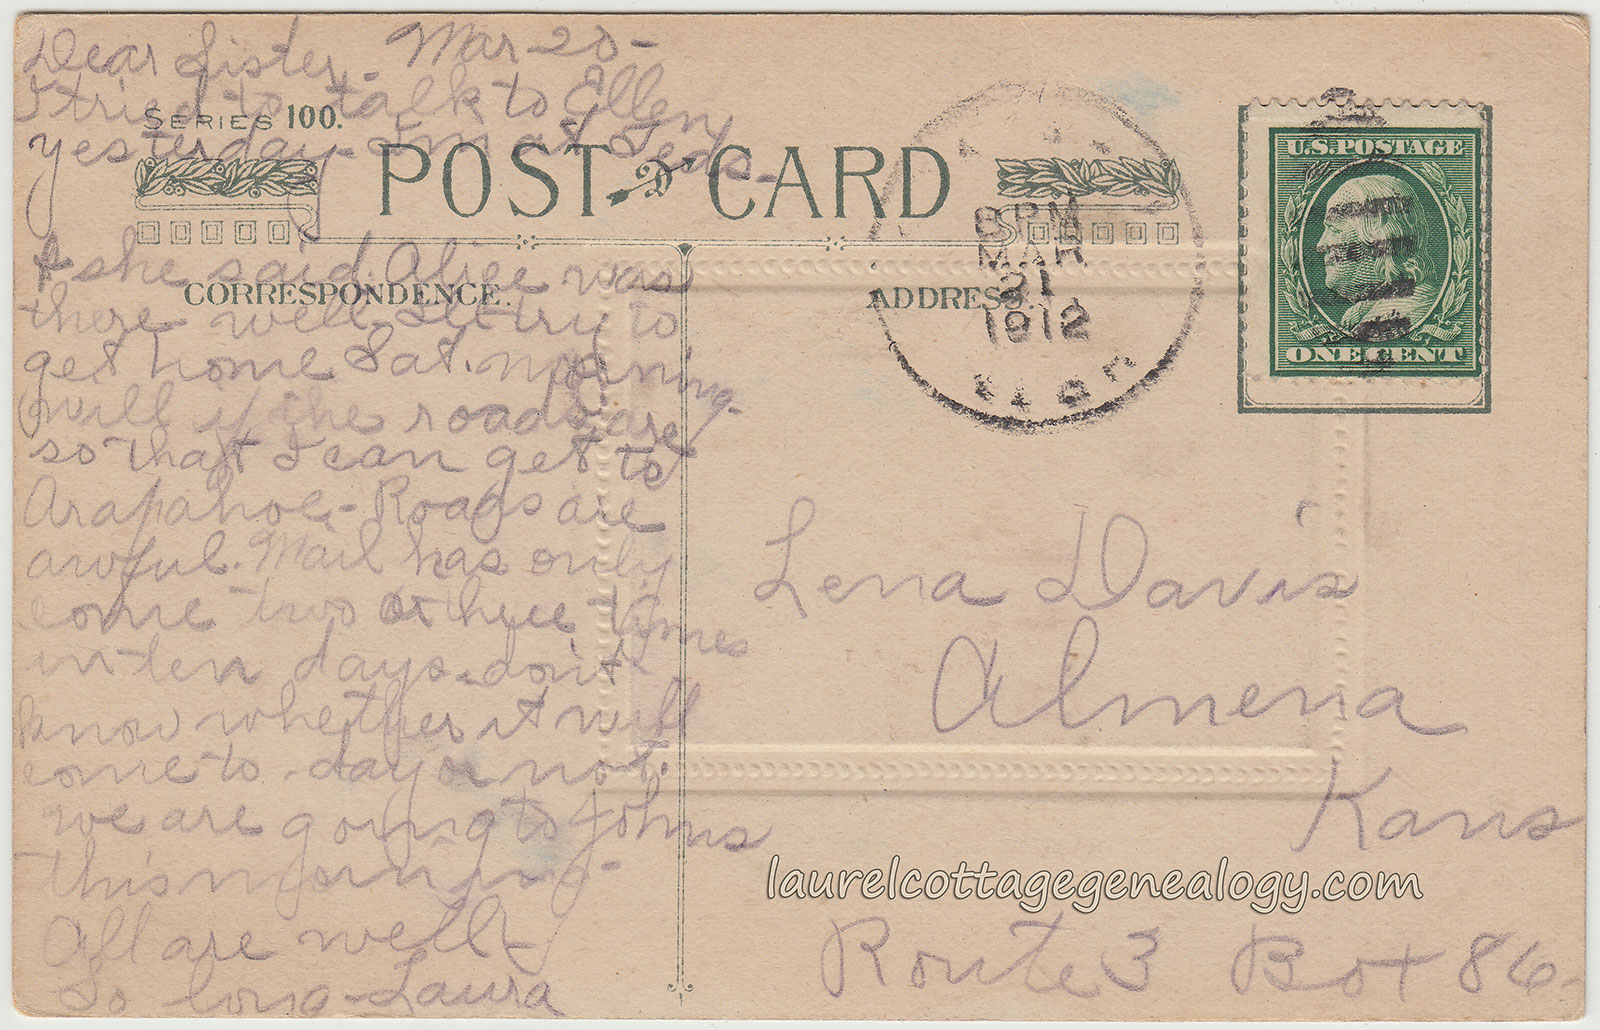 Dear Sister - Mar 20 -
I tried to talk to Ellen
SERIES 100.
yesterday - Im at Teds -
POST CARD
& she said Alice was
CORRESPONDENCE.
there well. I'll try to
get home Sat. morning
will if the roads are
so that I can get to
Arapahoe - Roads are
awful. Mail has only
come two or three times
in ten days. don't
know whether it will
come to-day or not.
we are going to Johns
this morning -
All are well -
So long - Laura
ADDRESS.
8 PM
MAR
21
1912
U.S. POSTAGE
ONE CENT
Lena Davis
Almena
Kans
laurelcottagegenealogy.com
Route 3 Box 86 -